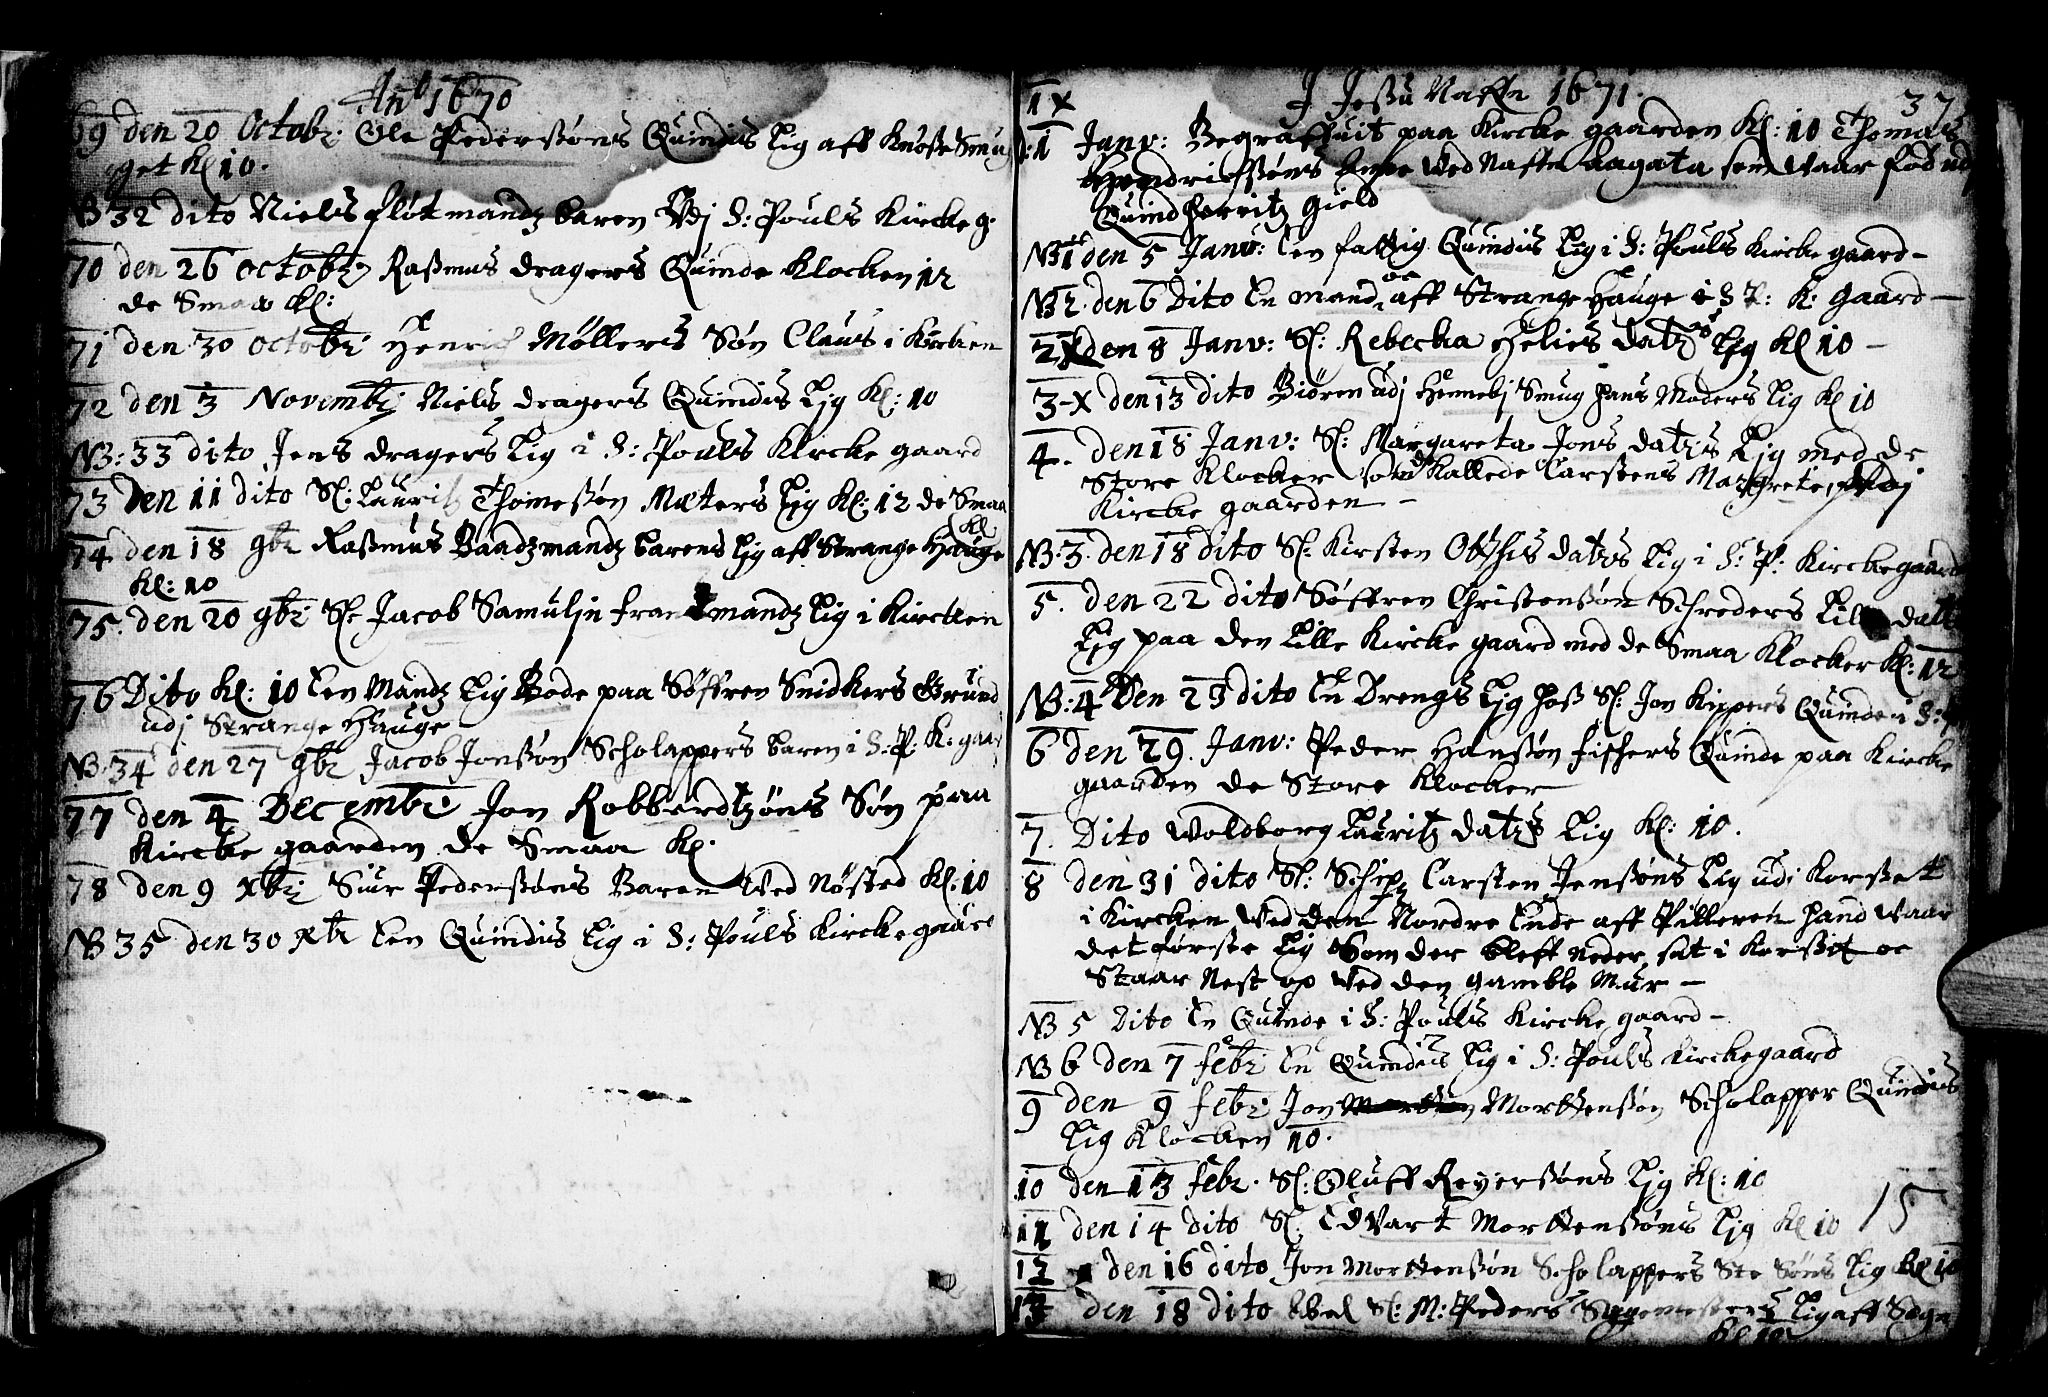 Ano 1670
69 den 20 Octobr: Ole Pederssøns Quindis Lig aff Knøsesmu
get Kl 10.
NB 32 dito Niels fløtmandz baren Vdj S: Pouls Kircke g.
70 den 26 octobr Rasmus dragers Quinde Klocken 12
de Smaa Kl:
71 den 30 octobr Henrich Møllers Søn Claus i Kircken
72 den 3 Novembr Niels dragers Quindis Lig Kl: 10
NB: 33 dito Jens dragers Lig i S: Pouls Kircke gaard
73 den 11 dito Sl: Lauritz Thomessøn Mæters Lig Kl: 12 de Smaa
Kl
74 den 18 9br Rasmus Baadzmandz barens Lig aff Strange Hauge
Kl: 10
75. den 20 9br Sl: Jacob Samulsøn Lig i Kircken
76 Dito Kl: 10 Een Mandz Lig Bode paa Søffren Snidkers Grund
udj Strange Hauge
NB. 34 den 27 9br Jacob Jonssøn Scholappers baren i S: P: K: gaar
77 den 4 Decembr Jon Robberdtzøns Søn paa
Kircke gaarden de Smaa Kl.
78 den 9 xbr Siur Pederssøns Baren Ved Nøsted Kl: 10
NB 35 den 30 Xbr Een Quindis Lig i S: Pouls Kircke gaard
J Jesu Naffn 1671.
37
1 x
1 Janv: Begraffuit paa Kircke gaarden Kl: 10 Thomas
Hendrichssøns Enke Ved Naffn Aagata som Vaar fød udj
Quindherritz gield
NB 1 den 5 Janv: Een fattig Quindis Lig i S: Pouls Kircke gaard -
NB 2. den 6 Dito En mand oc aff Strange Hauge i S P: K: gaard -
2 x den 8 Janv: Sl: Rebecka Helies datz Lig Kl 10 -
3 - x den 13 dito Biøren udj Hennebj Smug hans Moders Lig Kl 10
4. den 18 Janv: Sl: Margareta Jons datzs Lig med de
Store Klocker som Kallede Carstens Margrete, paa
Kircke gaarden -
NB: 3. den 18 dito Sl: Kirsten datzs Lig i S: P: Kircke gaard
5. den 22 dito Søffren Christenssøn Schreders Lille datt
Lig paa den Lille Kircke gaard med de Smaa Klocker Kl: 12
NB: 4 Den 23 dito En Drengs Lig hos Sl: Jon Kippers Quinde i S: P
6 den 29. Janv: Peder Hanssøn fischers Quinde paa Kircke
gaarden de Store Klocker
7. Dito Woldborg Lauritz datzs Lig Kl: 10.
8 den 31 dito Sl: Schip: Carsten Jenssøns Lig udi Korsset
i Kircken Ved den Nordre Ende aff Pilleren hand Vaar
det første Lig Som der bleff neder sat i Korsset oc
Staar Nest op Ved den gamble Mur -
NB 5 Dito En Quinde i S: Pouls Kircke gaard -
NB 6 den 7 febr En Quindis Lig i S: Pouls Kirckegaard
9 den 9 febr Jon Mortten Morttenssøn Scholapper Quindis
Lig Klocken 10.
10 den 13 febr. Sl: Oluff Reyerssøns Lig Kl: 10
11 den 14 dito Sl: Edvart Morttenssøns Lig Kl 10
15
12 den 16 dito Jon Morttenssøn Scholappers Ste Søns Lig Kl 10
13 den 18 dito Sl: M: Peders Lig aff
Kl 10